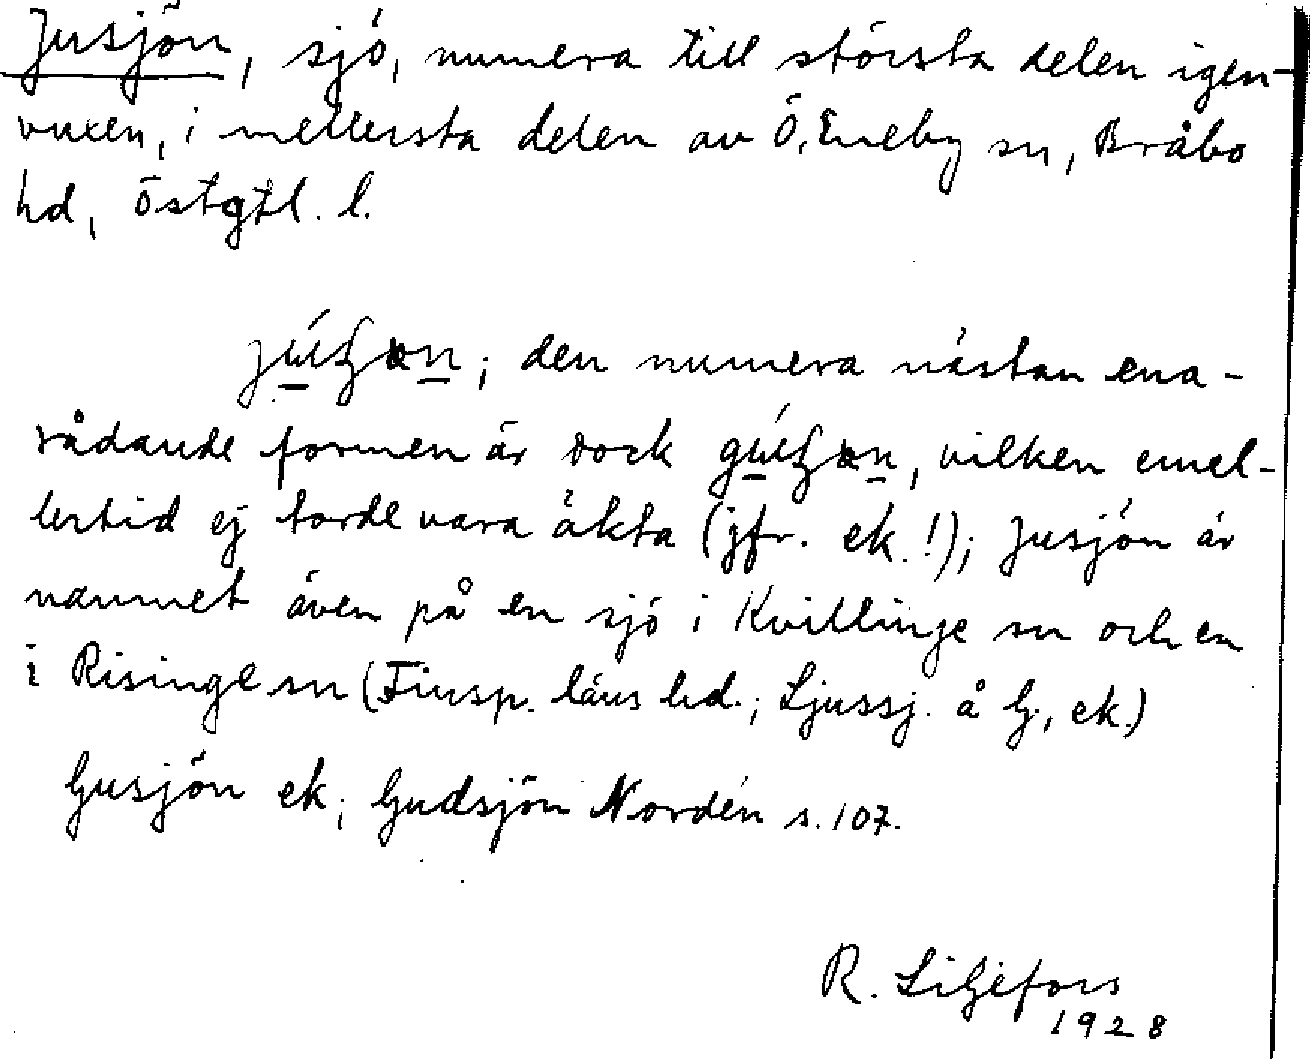 Jusjön, sjö, numera till största delen igen-
vuxen, i mellersta delen av Ö. Eneby sn, Bråbo
hd, Östgtl. l.
; den numera nästan ena-
rådande formen är dock , vilken emel-
lertid ej torde vara äkta (jfr. ek.!); Jusjön är
namnet även på en sjö i Kvillinge sn och en
i Risinge sn (Finsp. läns hd.; Ljussj. å G, ek.)
Gusjön ek; Gudsjön Nordén s. 107.
R. Liljefors
1928